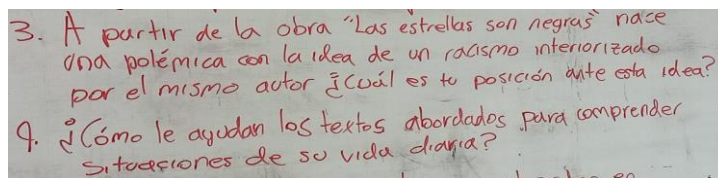 3. A partir de la obra "Las estrellas son negras" nace
una polémica con la idea de un racismo interiorizado
por el mismo autor ¿Cuál es tu posición ante esta idea?
4. ¿Cómo le ayudan los textos abordados para comprender
situaciones de su vida diaria?